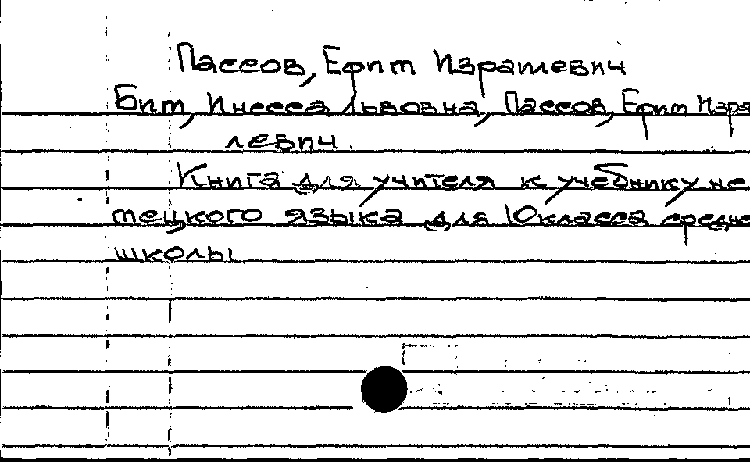 Пассов, Ефим Израилевич
Бим, Инесса Львовна, Пассов, Ефим Изра
левич.
Книга для учителя к учебнику не
мецкого языка для 10 класса средне
школы